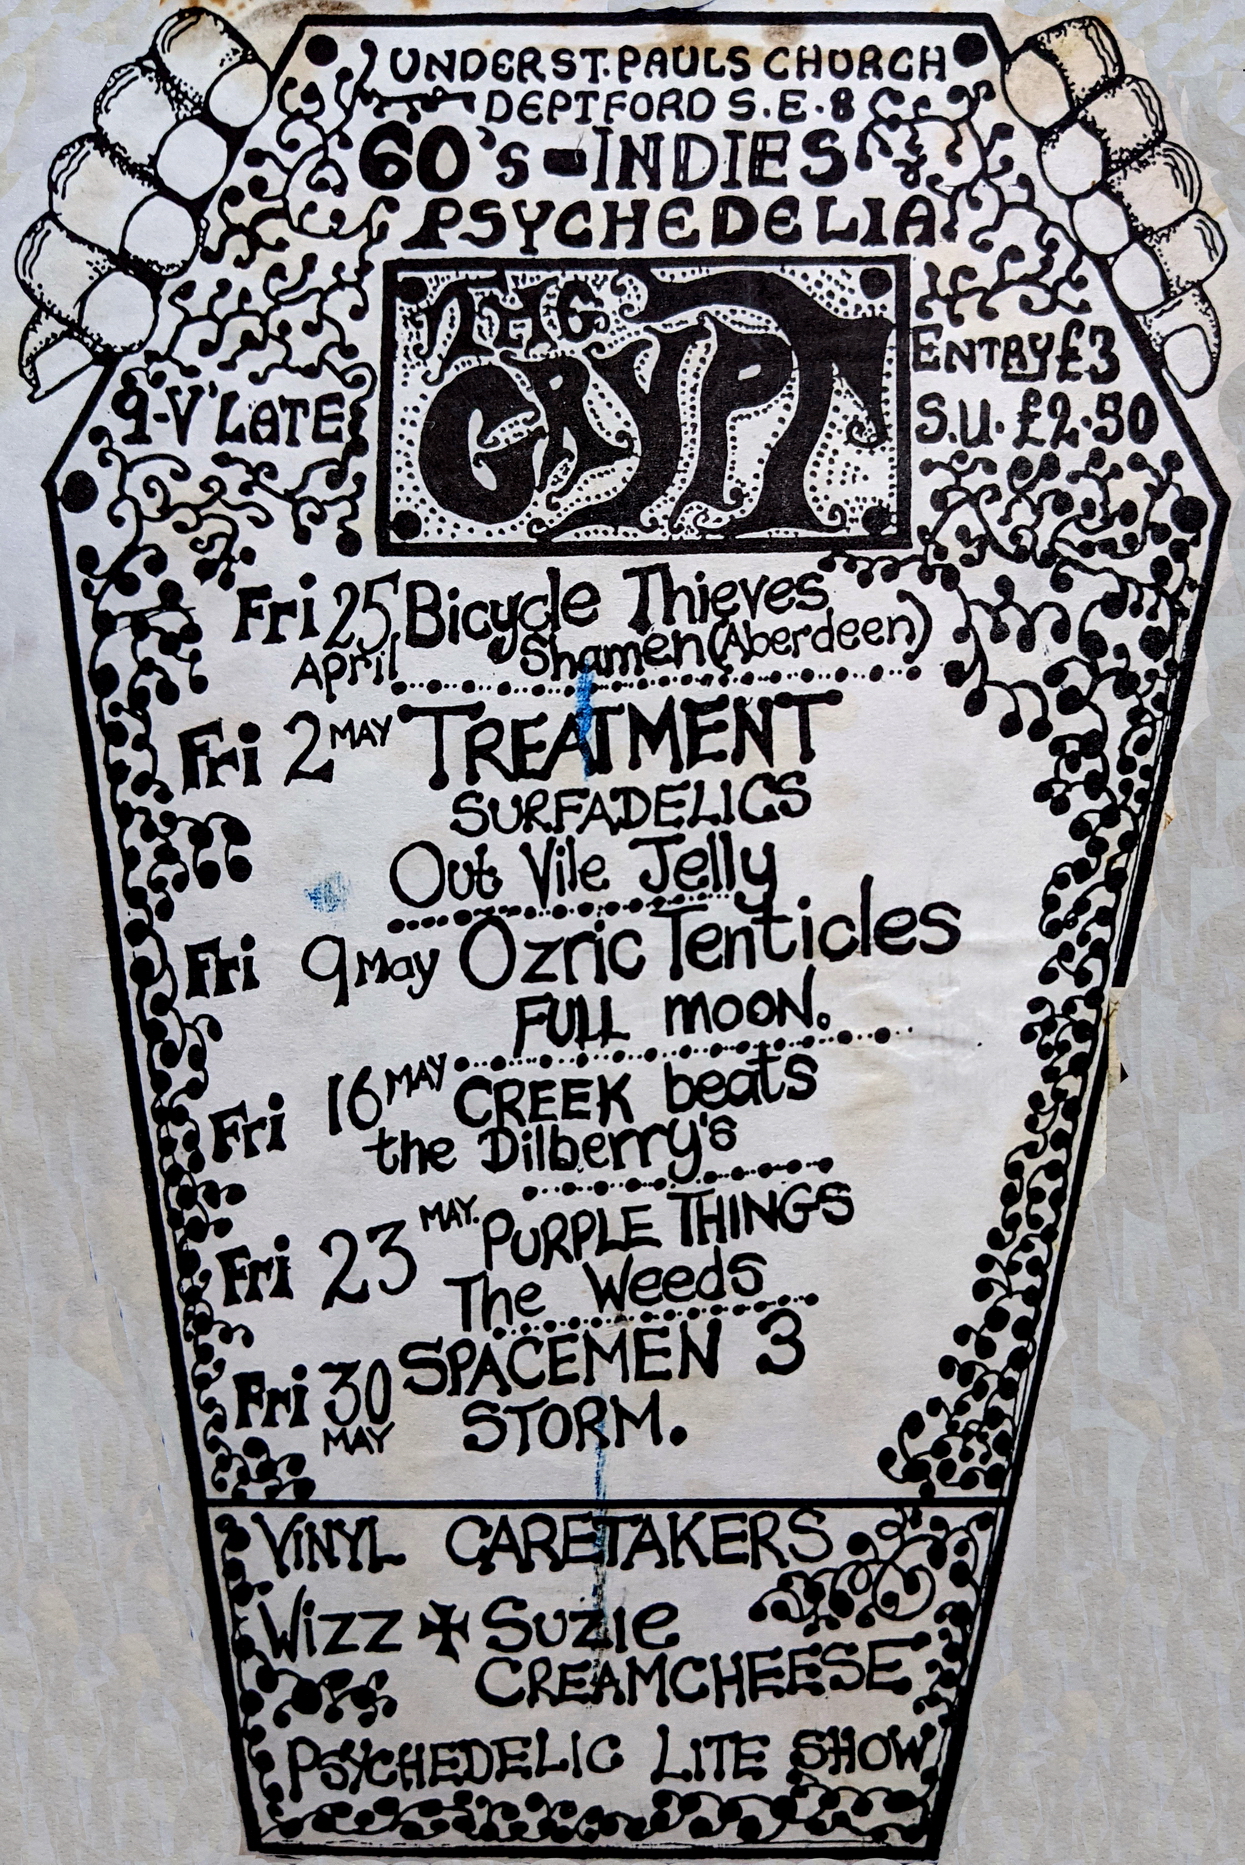 UNDER ST. PAULS CHURCH
DEPTFORD S.E.8
60's - INDIES
PSYCHEDELIA
THE
CRYPT
9-V'LATE
ENTRY £3
S.U. £2.50
Fri 25 April Bicycle Thieves
Shamen (Aberdeen)
Fri 2 MAY TREATMENT
SURFADELICS
Out Vile Jelly
Fri 9 May Ozric Tenticles
FULL MOON.
Fri 16 MAY CREEK beats
the Dilberry's
Fri 23 MAY. PURPLE THINGS
The Weeds
Fri 30 MAY SPACEMEN 3
STORM.
VINYL CARETAKERS
Wizz ✠ Suzie
CREAMCHEESE
PSYCHEDELIC LITE SHOW